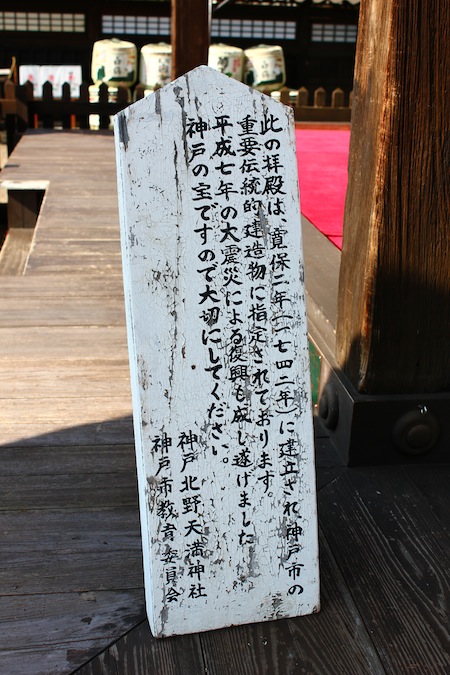 此の拝殿は、寛保二年(一七四二年)に建立され神戸市の
重要伝統的建造物に指定されております。
平成七年の大震災による復興も成し遂げました
神戸の宝ですので大切にしてください。
神戸北野天満神社
神戸市教育委員会